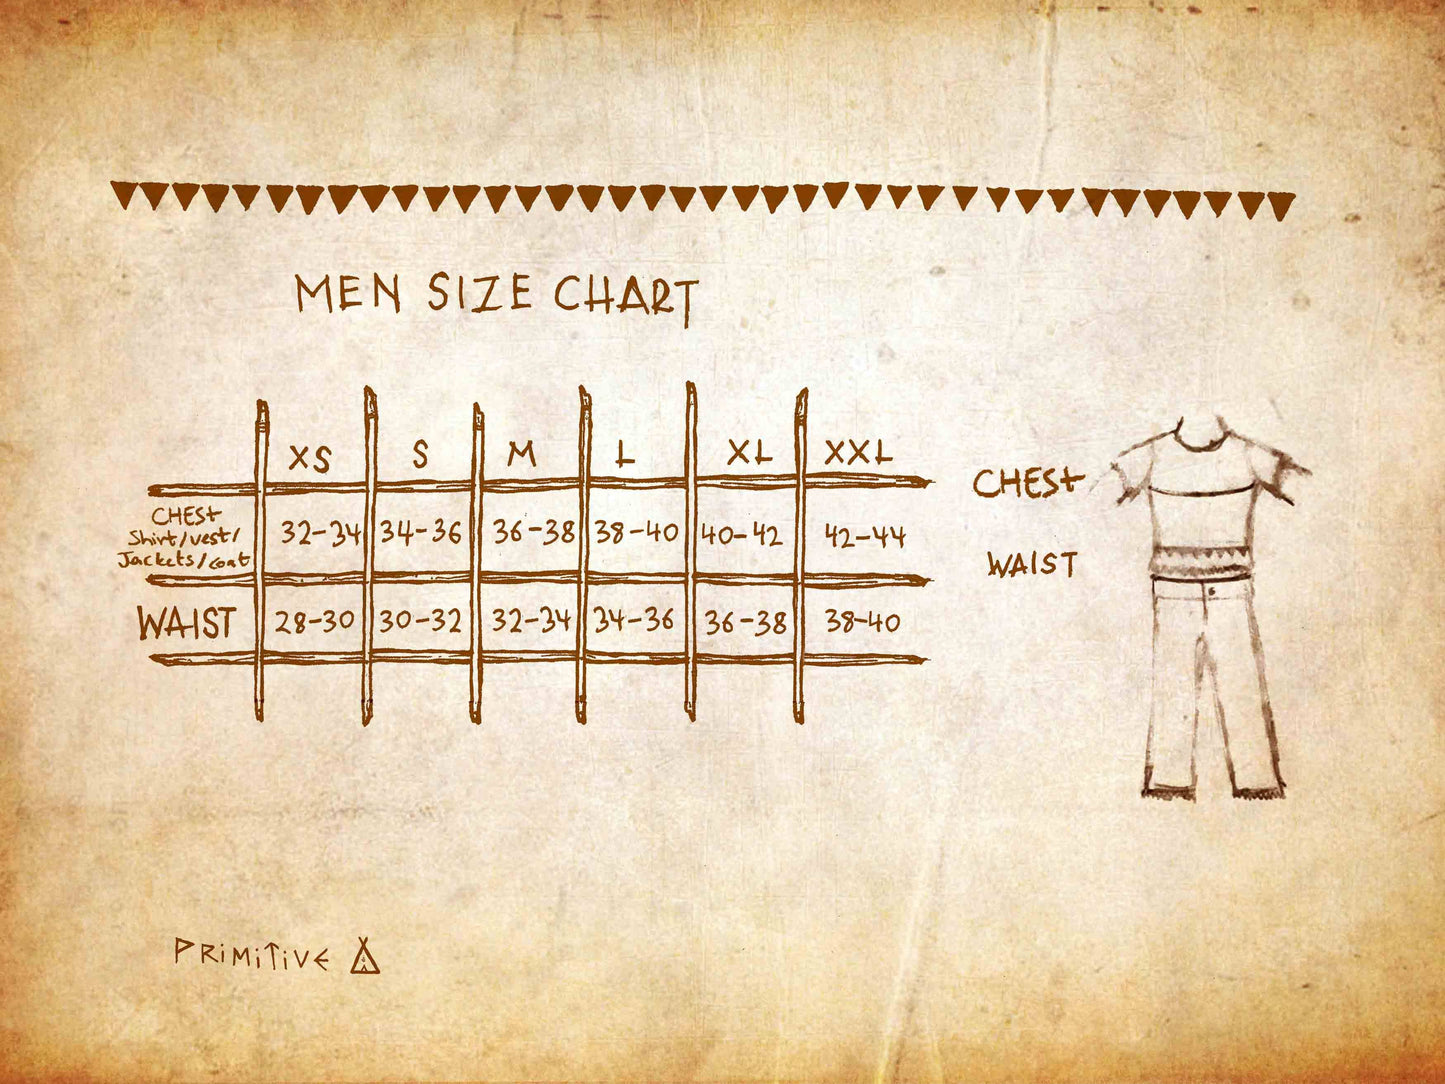 MEN SIZE CHART
XS S M L XL XXL
CHEST
Shirt/vest/
Jackets/coat
32-34 34-36 36-38 38-40 40-42 42-44
WAIST 28-30 30-32 32-34 34-36 36-38 38-40
CHEST
WAIST
PRiMiTiVE